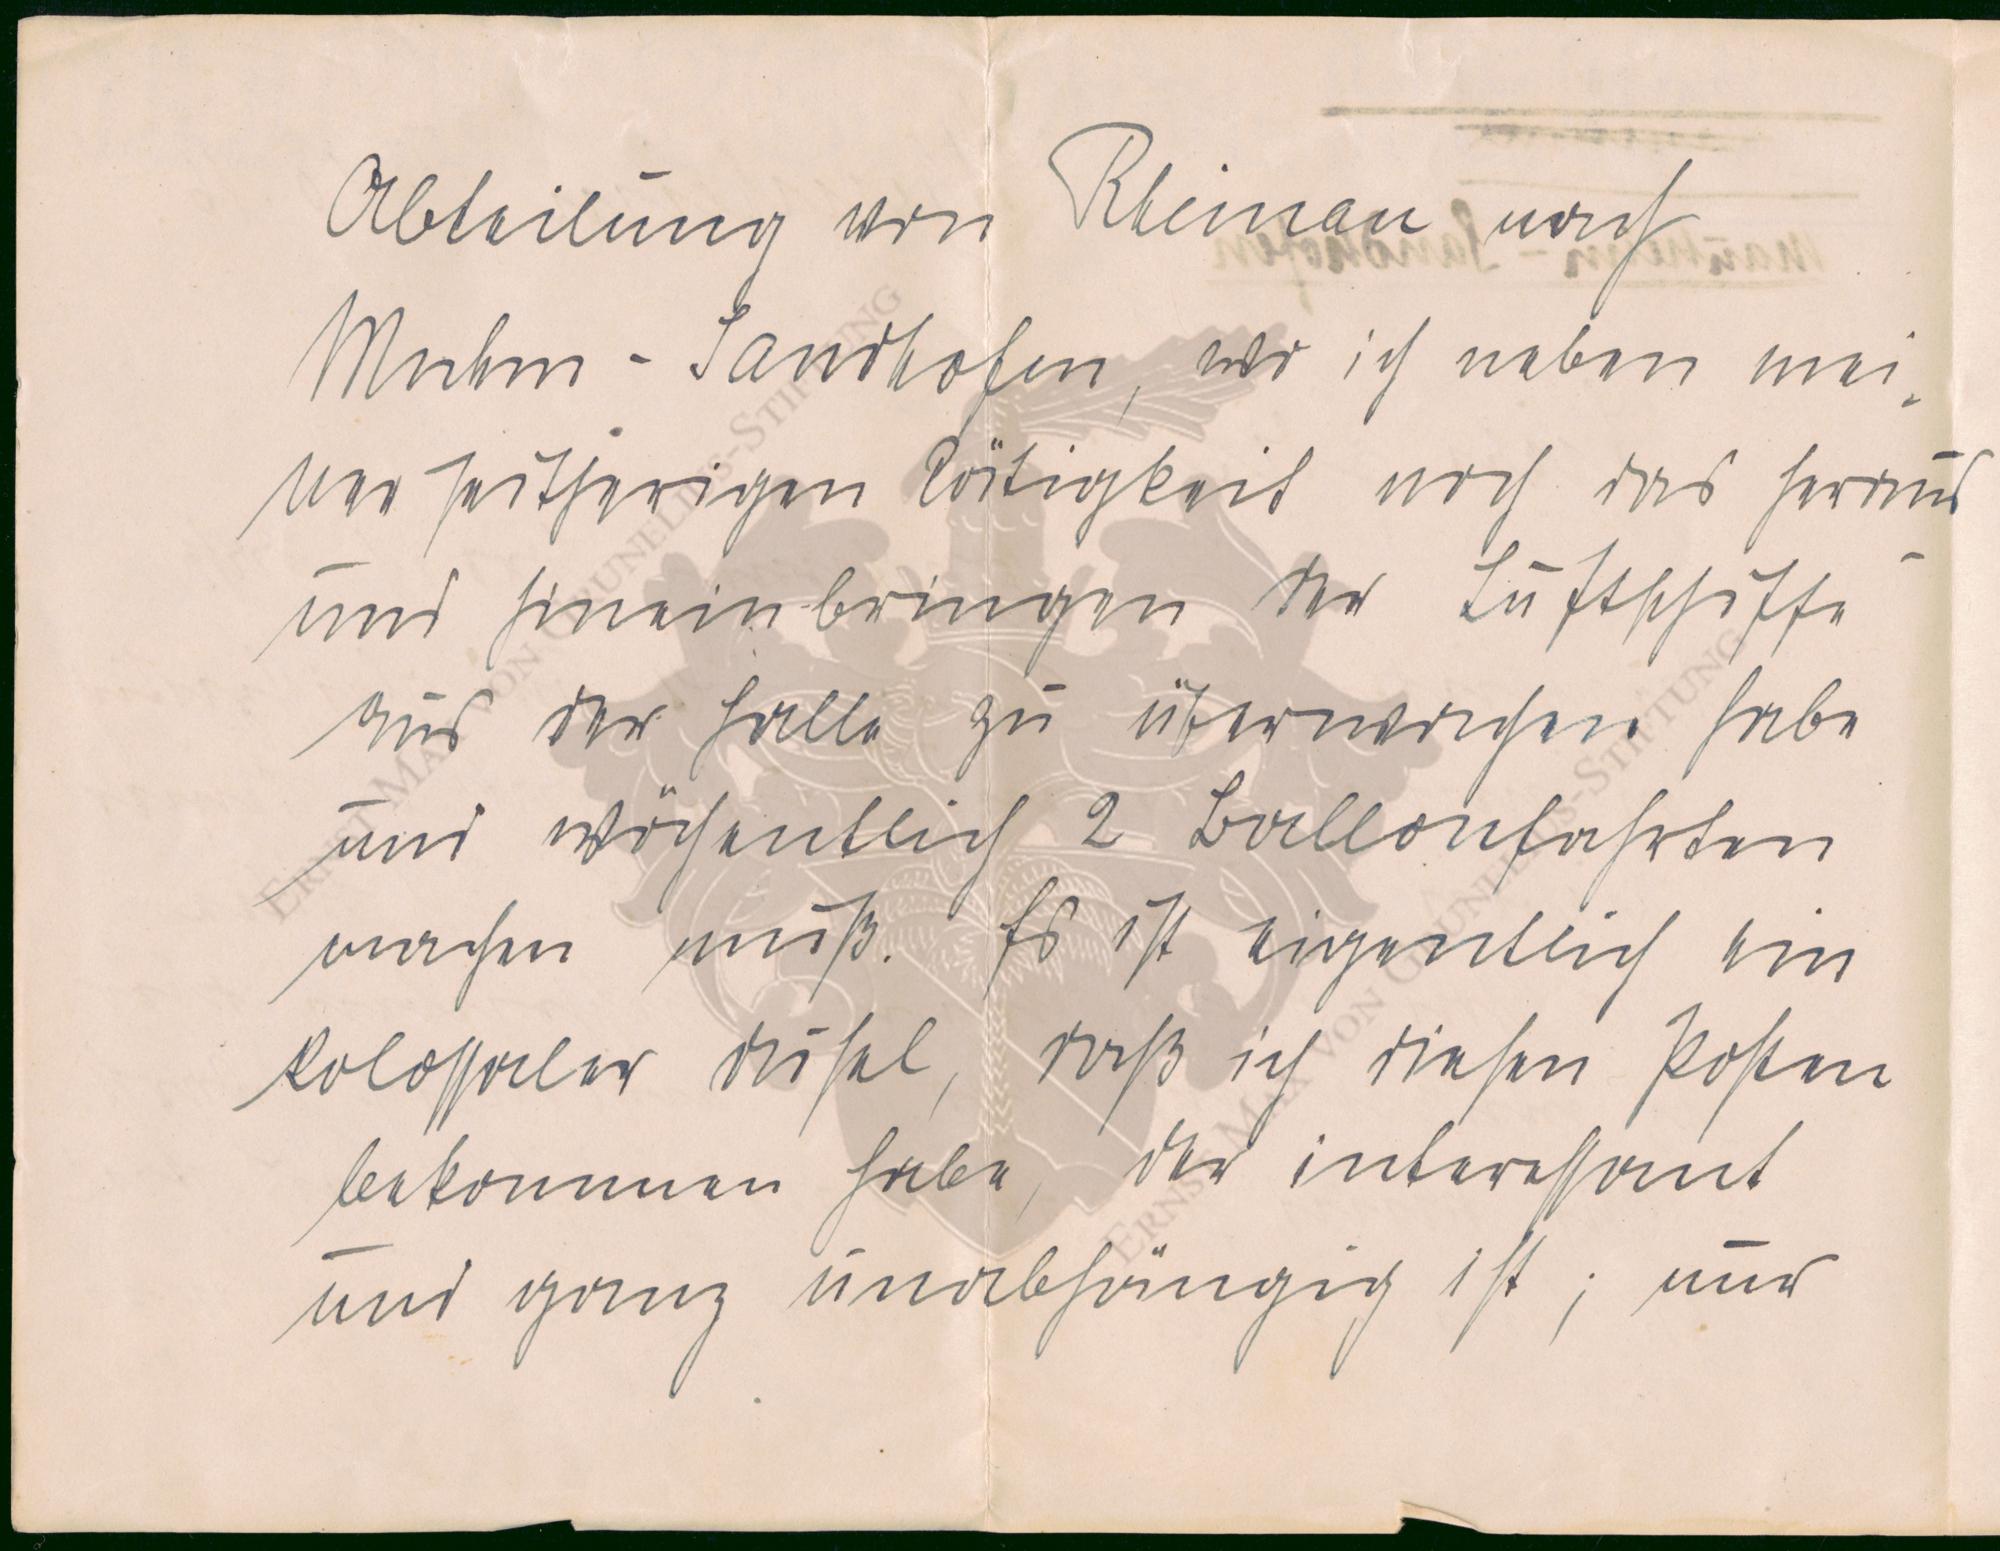 Abteilung von Rheinau nach
Mnhm - Sandhofen, wo ich neben mei-
ner seitherigen Tätigkeit noch das heraus
und hineinbringen der Luftschiffe
aus der Halle zu überwachen habe
und wöchentlich 2 Ballonfahrten
machen muß. Es ist eigentlich ein
kolossaler Dusel, daß ich diesen Posten
bekommen habe, der interessant
und ganz unabhängig ist; nur
Ernst Max von Grunelius-Stiftung
Ernst Max von Grunelius-Stiftung